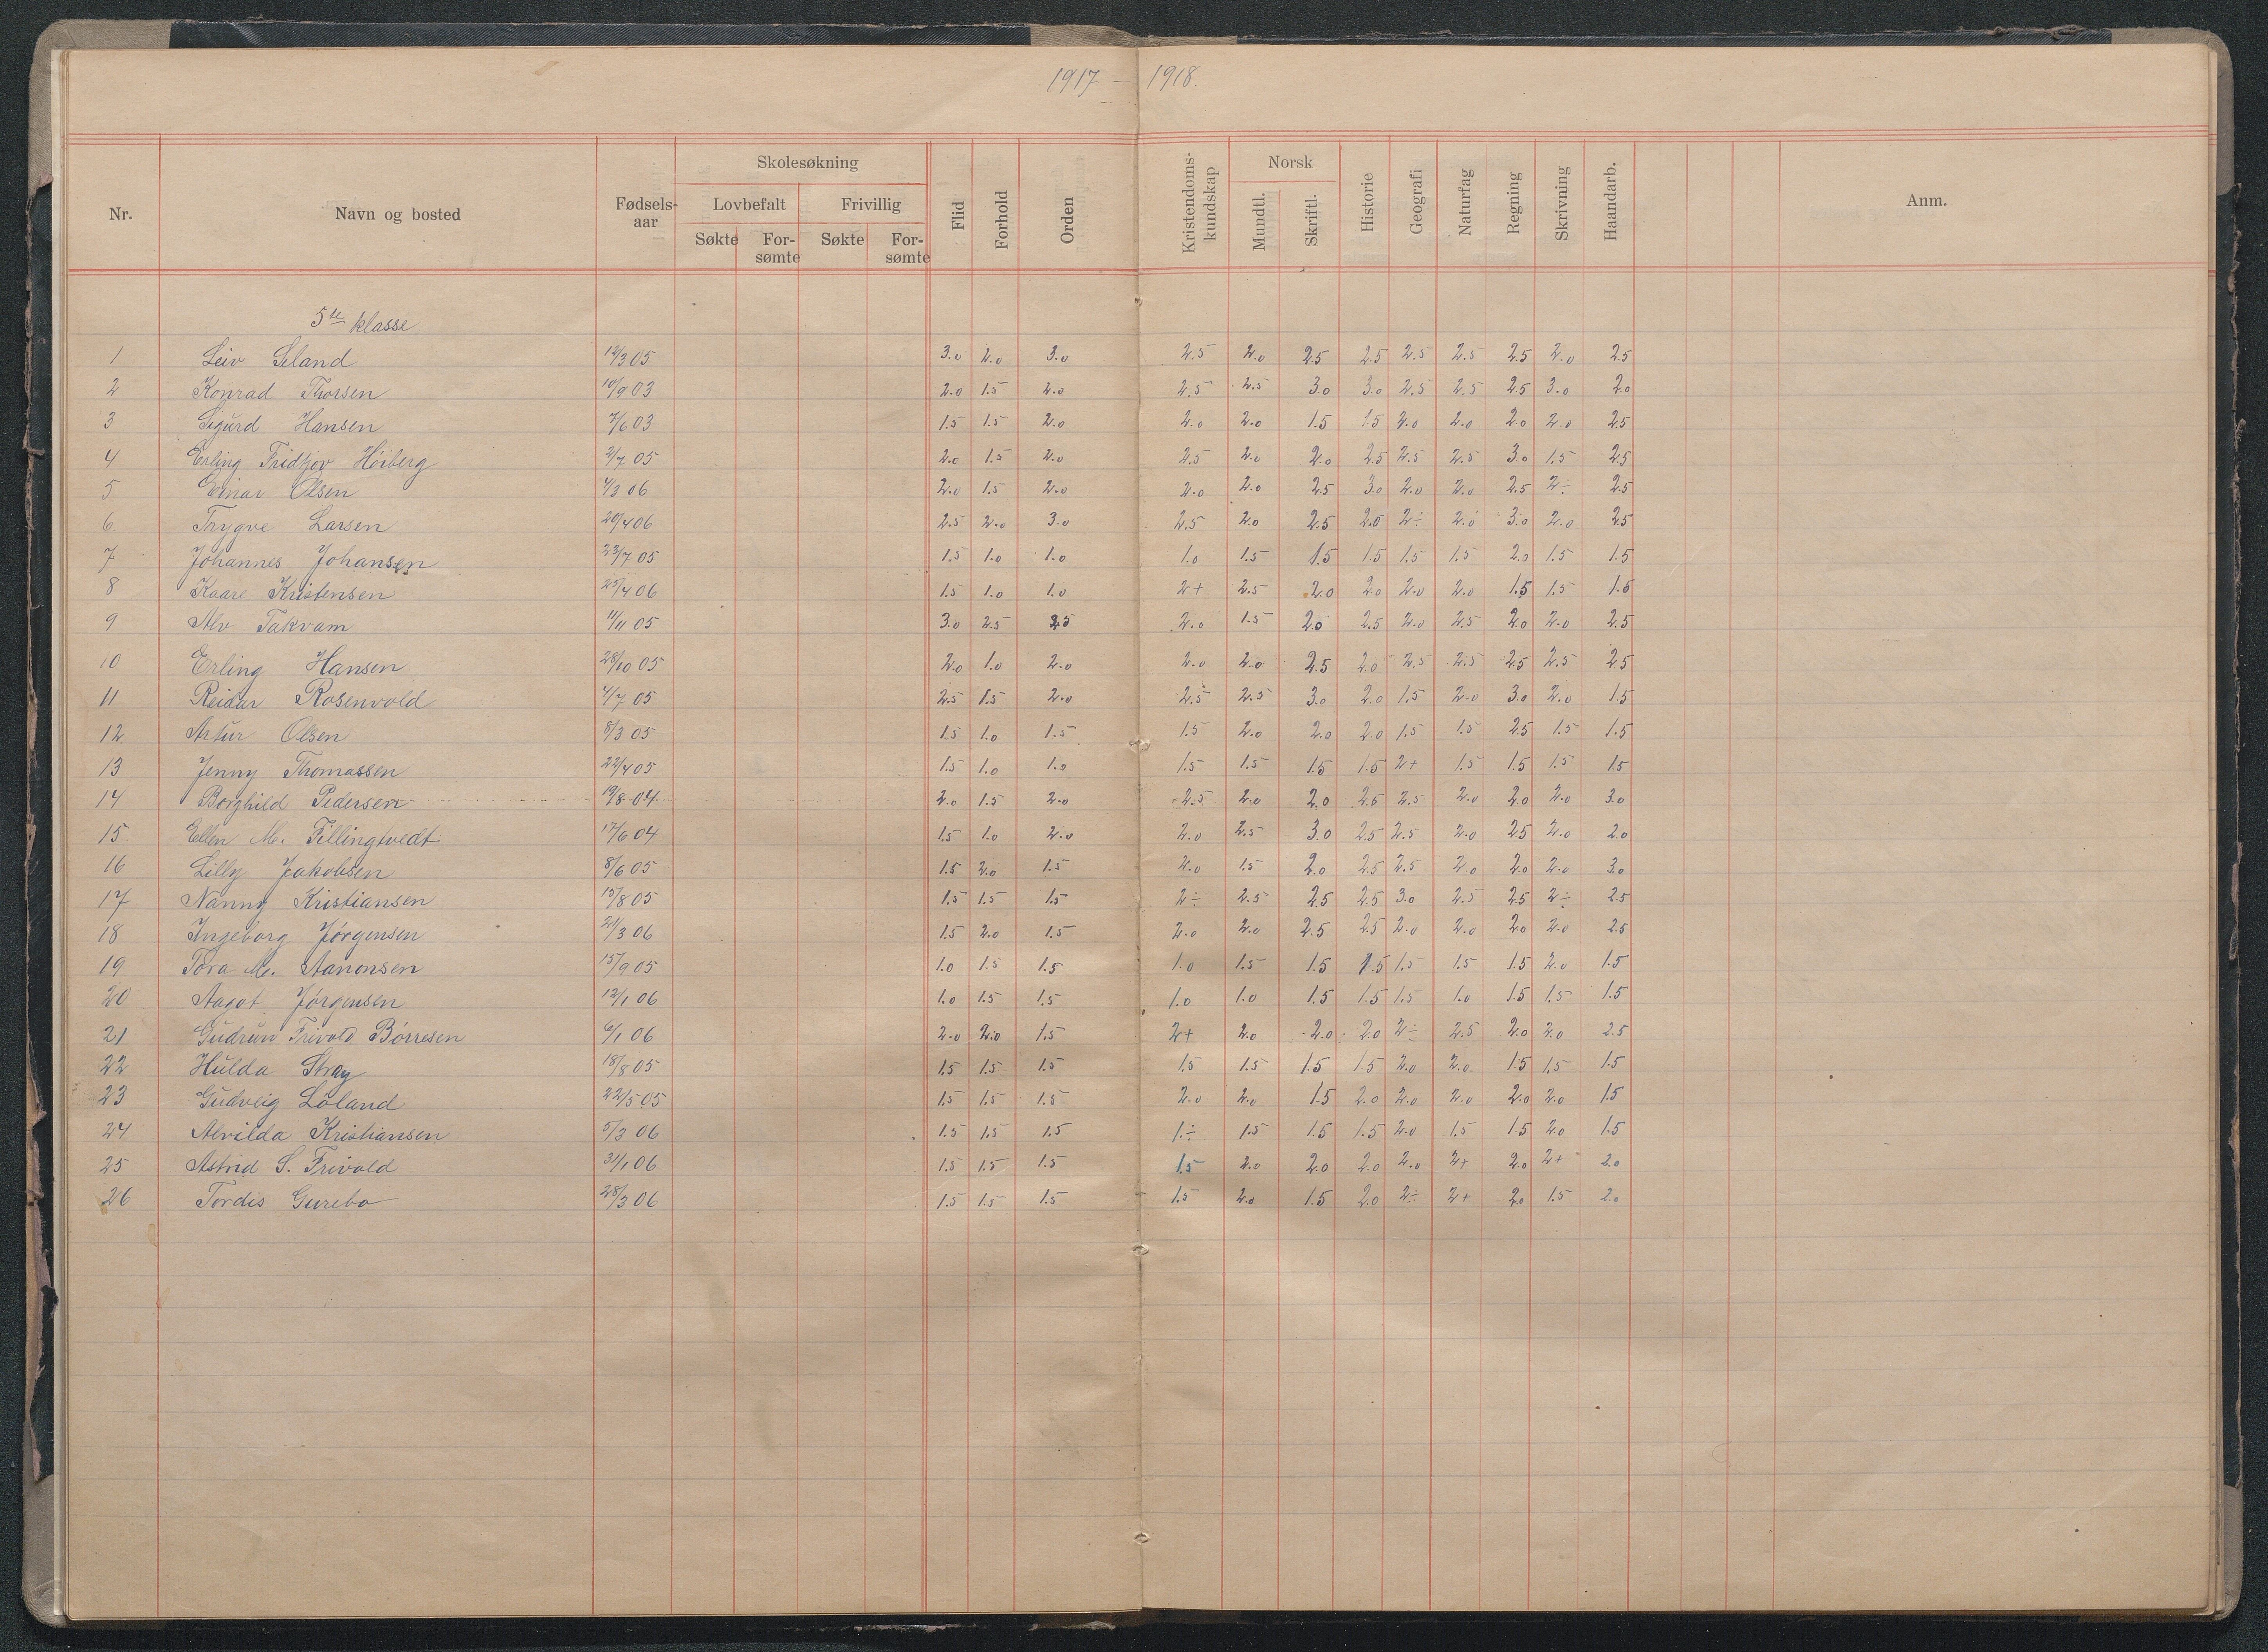 1917 – 1918.
Nr. Navn og bosted Fødselsaar Skolesøkning Lovbefalt Søkte Forsømte Frivillig Søkte Forsømte Flid Forhold Orden Kristendomskundskap Norsk Mundtl. Skriftl. Historie Geografi Naturfag Regning Skrivning Haandarb. Anm.
5te klasse
1 Leiv Seland 12/3 05 3.0 2.0 3.0 2.5 2.0 2.5 2.5 2.5 2.5 2.5 2.0 2.5
2 Konrad Thorsen 10/9 03 2.0 1.5 2.0 2.5 2.5 3.0 3.0 2.5 2.5 2.5 3.0 2.0
3 Sigurd Hansen 7/6 03 1.5 1.5 2.0 2.0 2.0 1.5 1.5 2.0 2.0 2.0 2.0 2.5
4 Erling Fridtjov Höiberg 2/7 05 2.0 1.5 2.0 2.5 2.0 2.0 2.5 2.5 2.5 3.0 1.5 2.5
5 Einar Olsen 4/3 06 2.0 1.5 2.0 2.0 2.0 2.5 3.0 2.0 2.0 2.5 2÷ 2.5
6 Trygve Larsen 20/4 06 2.5 2.0 3.0 2.5 2.0 2.5 2.0 2÷ 2.0 3.0 2.0 2.5
7 Johannes Johansen 23/7 05 1.5 1.0 1.0 1.0 1.5 1.5 1.5 1.5 1.5 2.0 1.5 1.5
8 Kaare Kristensen 25/4 06 1.5 1.0 1.0 2+ 2.5 2.0 2.0 2.0 2.0 1.5 1.5 1.5
9 Alv Takvam 11/11 05 3.0 2.5 2.5 2.0 1.5 2.0 2.5 2.0 2.5 2.0 2.0 2.5
10 Erling Hansen 28/10 05 2.0 1.0 2.0 2.0 2.0 2.5 2.0 2.5 2.5 2.5 2.5 2.5
11 Reidar Rosenvold 4/7 05 2.5 1.5 2.0 2.5 2.5 3.0 2.0 1.5 2.0 3.0 2.0 1.5
12 Artur Olsen 8/3 05 1.5 1.0 1.5 1.5 2.0 2.0 2.0 1.5 1.5 2.5 1.5 1.5
13 Jenny Thomassen 22/4 05 1.5 1.0 1.0 1.5 1.5 1.5 1.5 2+ 1.5 1.5 1.5 1.5
14 Borghild Pedersen 19/8 04 2.0 1.5 2.0 2.5 2.0 2.0 2.5 2.5 2.0 2.0 2.0 3.0
15 Ellen M. Fillingtvedt 17/6 04 1.5 1.0 2.0 2.0 2.5 3.0 2.5 2.5 2.0 2.5 2.0 2.0
16 Lilly Jakobsen 8/6 05 1.5 2.0 1.5 2.0 1.5 2.0 2.5 2.5 2.0 2.0 2.0 3.0
17 Nanny Kristiansen 15/8 05 1.5 1.5 1.5 2÷ 2.5 2.5 2.5 3.0 2.5 2.5 2÷ 2.5
18 Ingeborg Jörgensen 21/3 06 1.5 2.0 1.5 2.0 2.0 2.5 2.5 2.0 2.0 2.0 2.0 2.5
19 Tora M. Aanonsen 15/9 05 1.0 1.5 1.5 1.0 1.5 1.5 1.5 1.5 1.5 1.5 2.0 1.5
20 Aagot Jörgensen 12/1 06 1.0 1.5 1.5 1.0 1.0 1.5 1.5 1.5 1.0 1.5 1.5 1.5
21 Gudrun Frivold Börresen 6/1 06 2.0 2.0 1.5 2+ 2.0 2.0 2.0 2÷ 2.5 2.0 2.0 2.5
22 Hulda Stray 18/8 05 1.5 1.5 1.5 1.5 1.5 1.5 1.5 2.0 2.0 1.5 1.5 1.5
23 Gudveig Löland 22/5 05 1.5 1.5 1.5 2.0 2.0 1.5 2.0 2.0 2.0 2.0 2.0 1.5
24 Alvilda Kristiansen 5/3 06 1.5 1.5 1.5 1÷ 1.5 1.5 1.5 2.0 1.5 1.5 2.0 1.5
25 Astrid S. Frivold 31/1 06 1.5 1.5 1.5 1.5 2.0 2.0 2.0 2.0 2+ 2.0 2+ 2.0
26 Tordis Gurebo 28/3 06 1.5 1.5 1.5 1.5 2.0 1.5 2.0 2÷ 2+ 2.0 1.5 2.0